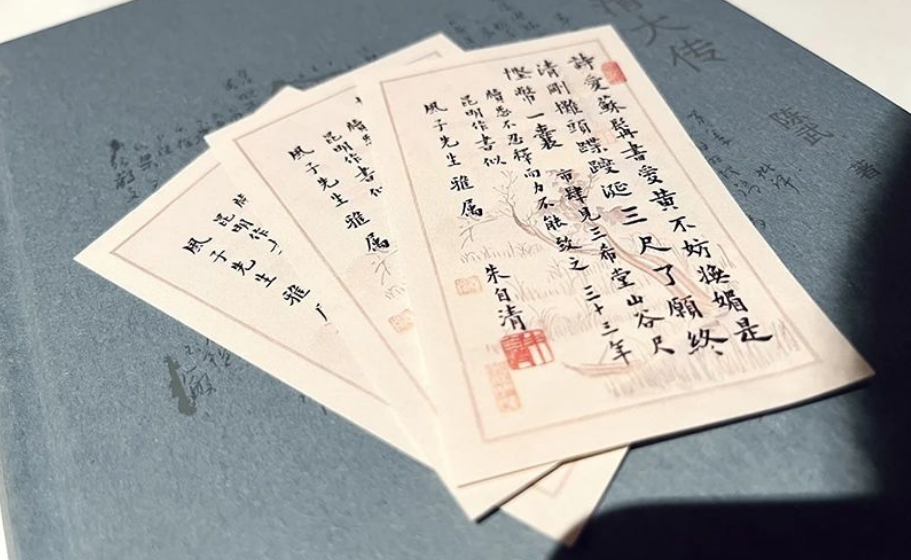 詩愛蘇髯書愛黃不妨嫵媚是
清剛攤頭蹀躞涎三尺了願終
慳幣一囊 市肆見三希堂山谷尺
牘愛不忍釋而力不能致之 三十三年
昆明作書似
風子先生雅属
朱自清
昆明作書
風子先生雅属
昆明作
風子先生雅
清大传
陈武 著